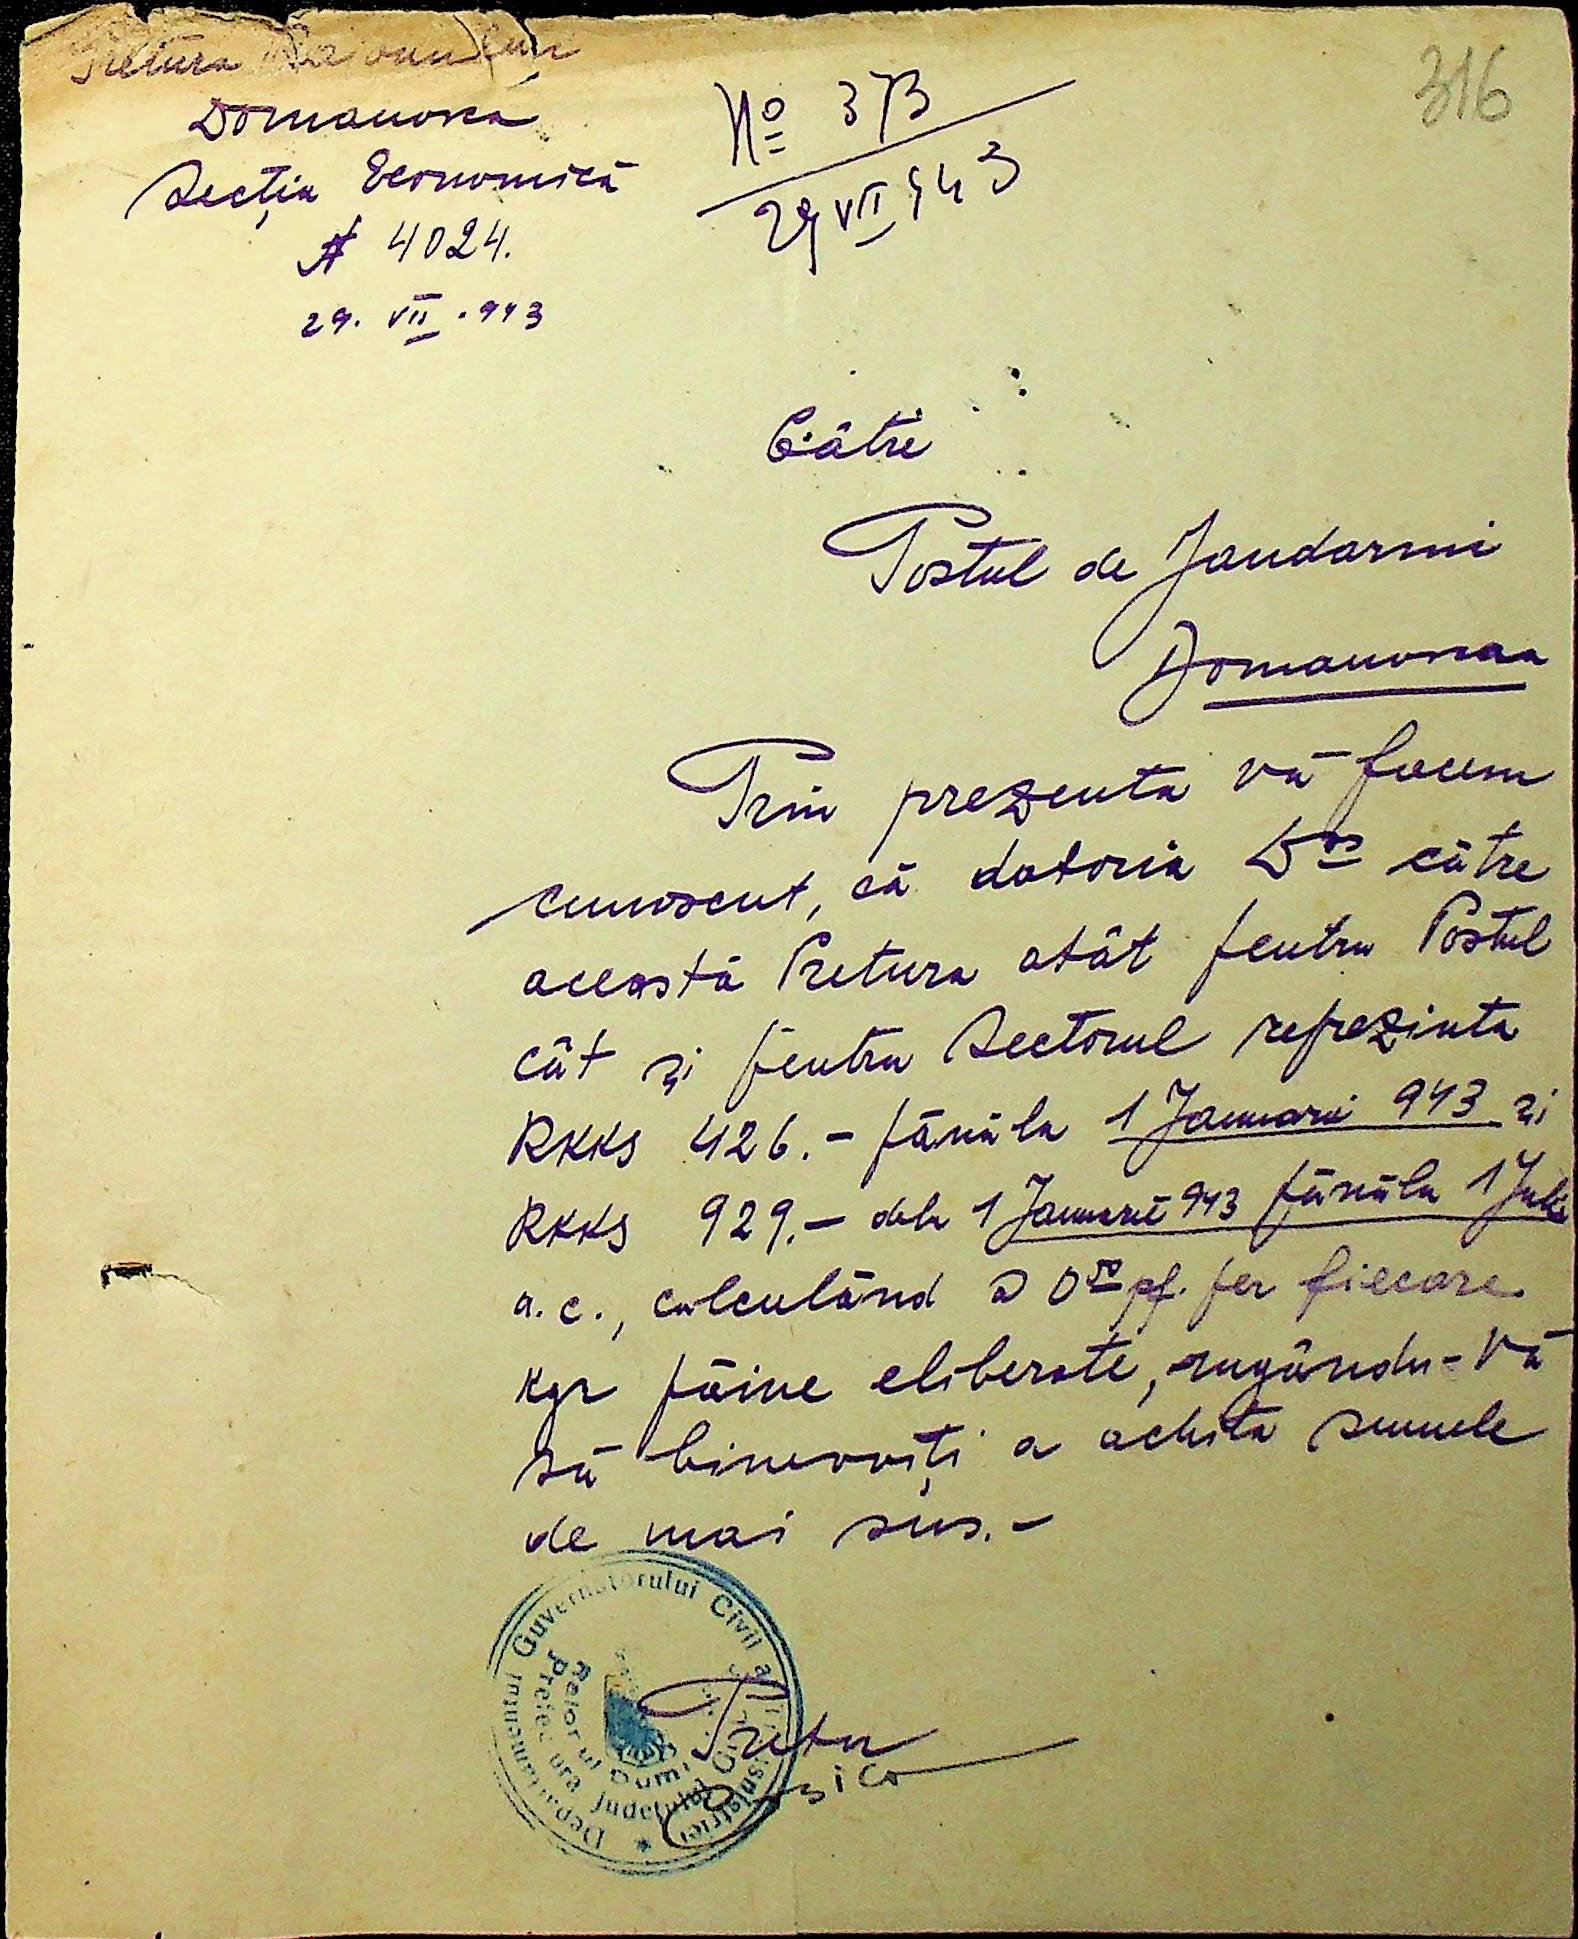 Pretura Raionului
Domanovca
Secția Economică
№ 4024.
29. VII. 943
№ 373
29 VII 943
316
Către
Postul de Jandarmi
Domanovcaa
Prin prezenta vă facem
cunoscut, că datoria Dvs către
această Pretura atât pentru Postul
cât și pentru Sectorul reprezinta
RKKS 426.- până la 1 Januarie 943 și
RKKS 929.- dela 1 Januarie 943 până la 1 Julie
a.c., calculând a 0⁵⁰ pf. per fiecare
kgr pâine eliberate, rugându-Vă
să binevoiți a achita sumele
de mai sus.-
Departamentul Guvernatorului Civil al Transnistriei
Prefectura Județului
Pretor